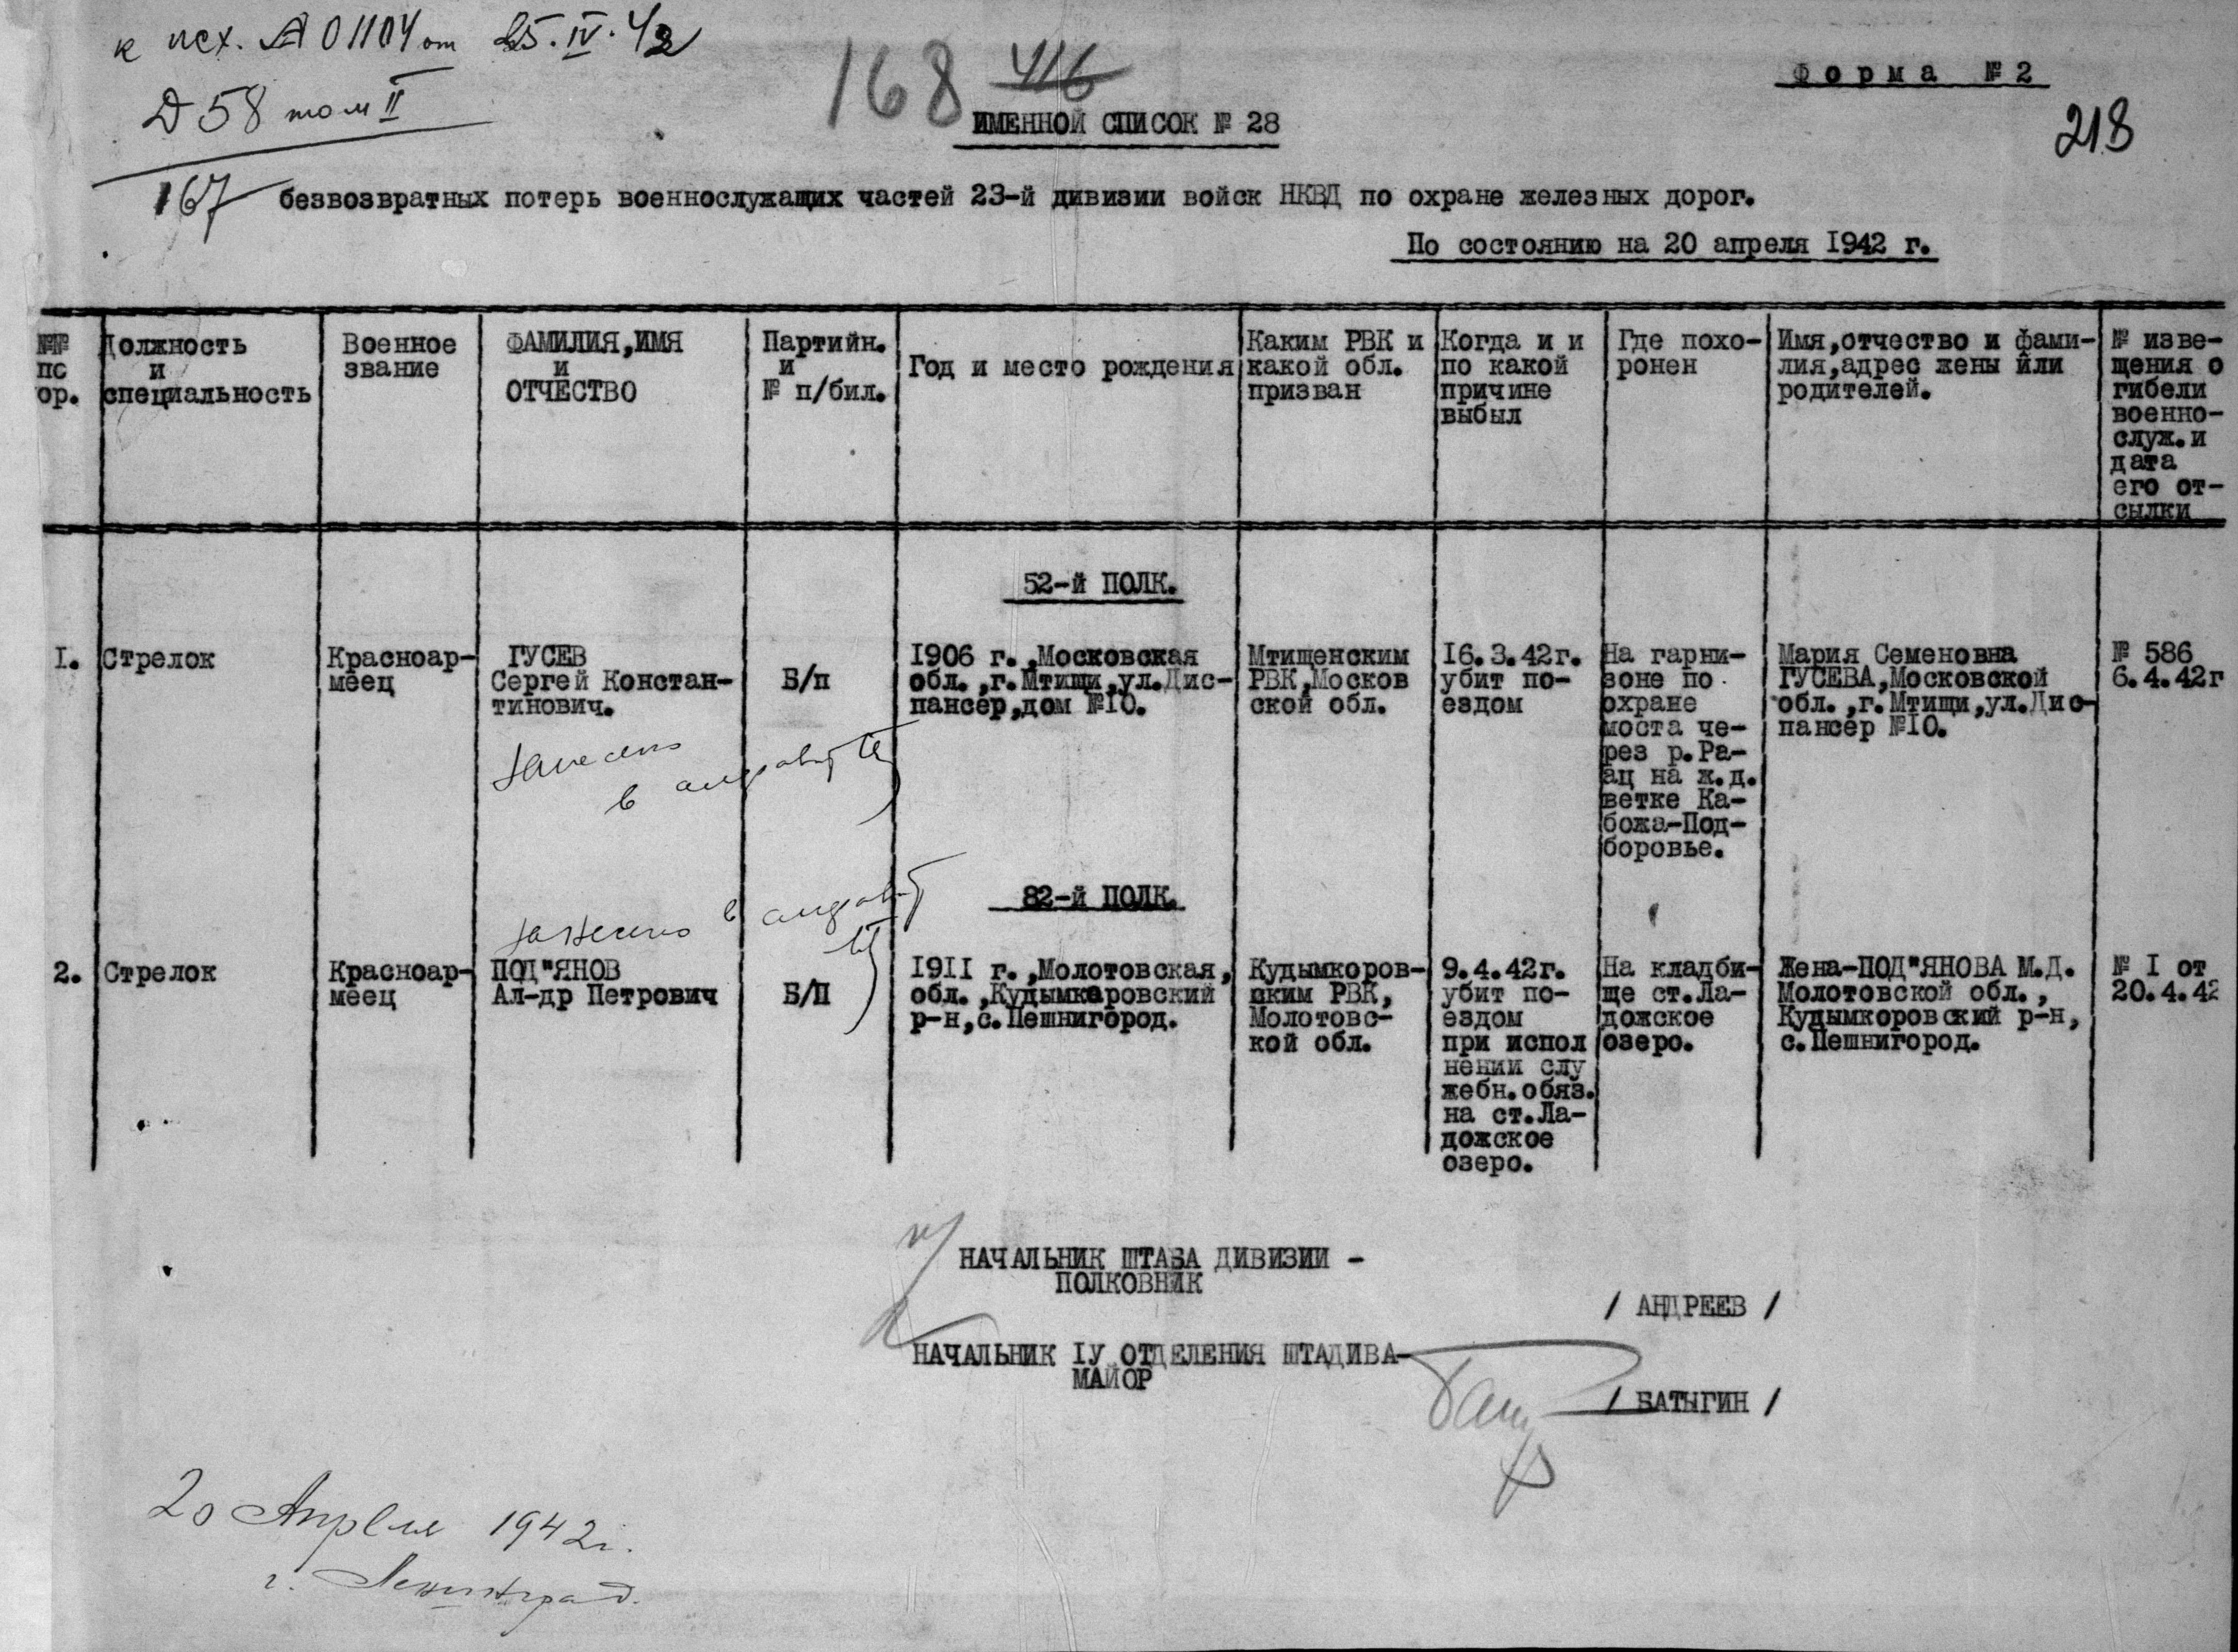 к исх. А 01104 от 25.IV.42
Д 58 том II
167
168 416
Форма №2
218
ИМЕННОЙ СПИСОК № 28
безвозвратных потерь военнослужащих частей 23-й дивизии войск НКВД по охране железных дорог.
По состоянию на 20 апреля 1942 г.
№№
по
ор.
Должность
и
специальность
Военное
звание
ФАМИЛИЯ,ИМЯ
и
ОТЧЕСТВО
Партийн.
и
№ п/бил.
Год и место рождения
Каким РВК и
какой обл.
призван
Когда и и
по какой
причине
выбыл
Где похо-
ронен
Имя,отчество и фами-
лия,адрес жены или
родителей.
№ изве-
щения о
гибели
военно-
служ.и
дата
его от-
сылки
52-й ПОЛК.
I.
Стрелок
Красноар-
меец
ГУСЕВ
Сергей Констан-
тинович.
Б/п
I906 г.,Московская
обл.,г.Мтищи,ул.Дис-
пансер,дом №I0.
Мтищенским
РВК,Москов
ской обл.
I6.3.42г.
убит по-
ездом
На гарни-
зоне по
охране
моста че-
рез р.Ра-
ац на ж.д.
ветке Ка-
божа-Под-
боровье.
Мария Семеновна
ГУСЕВА,Московской
обл.,г.Мтищи,ул.Дис-
пансер №I0.
№ 586
6.4.42г
занесено
в алфавит
82-й ПОЛК.
занесено в алфавит
2.
Стрелок
Красноар-
меец
ПОД"ЯНОВ
Ал-др Петрович
Б/П
I9II г.,Молотовская,
обл.,Кудымкаровский
р-н,с.Пешнигород.
Кудымкоров-
ским РВК,
Молотовс-
кой обл.
9.4.42г.
убит по-
ездом
при испол
нении слу
жебн.обяз.
на ст.Ла-
дожское
озеро.
На кладби-
ще ст.Ла-
дожское
озеро.
Жена-ПОД"ЯНОВА М.Д.
Молотовской обл.,
Кудымкоровский р-н,
с.Пешнигород.
№ I от
20.4.42
НАЧАЛЬНИК ШТАБА ДИВИЗИИ -
ПОЛКОВНИК
/ АНДРЕЕВ /
НАЧАЛЬНИК IУ ОТДЕЛЕНИЯ ШТАДИВА-
МАЙОР
/ БАТЫГИН /
20 Апреля 1942г.
г. Ленинград.